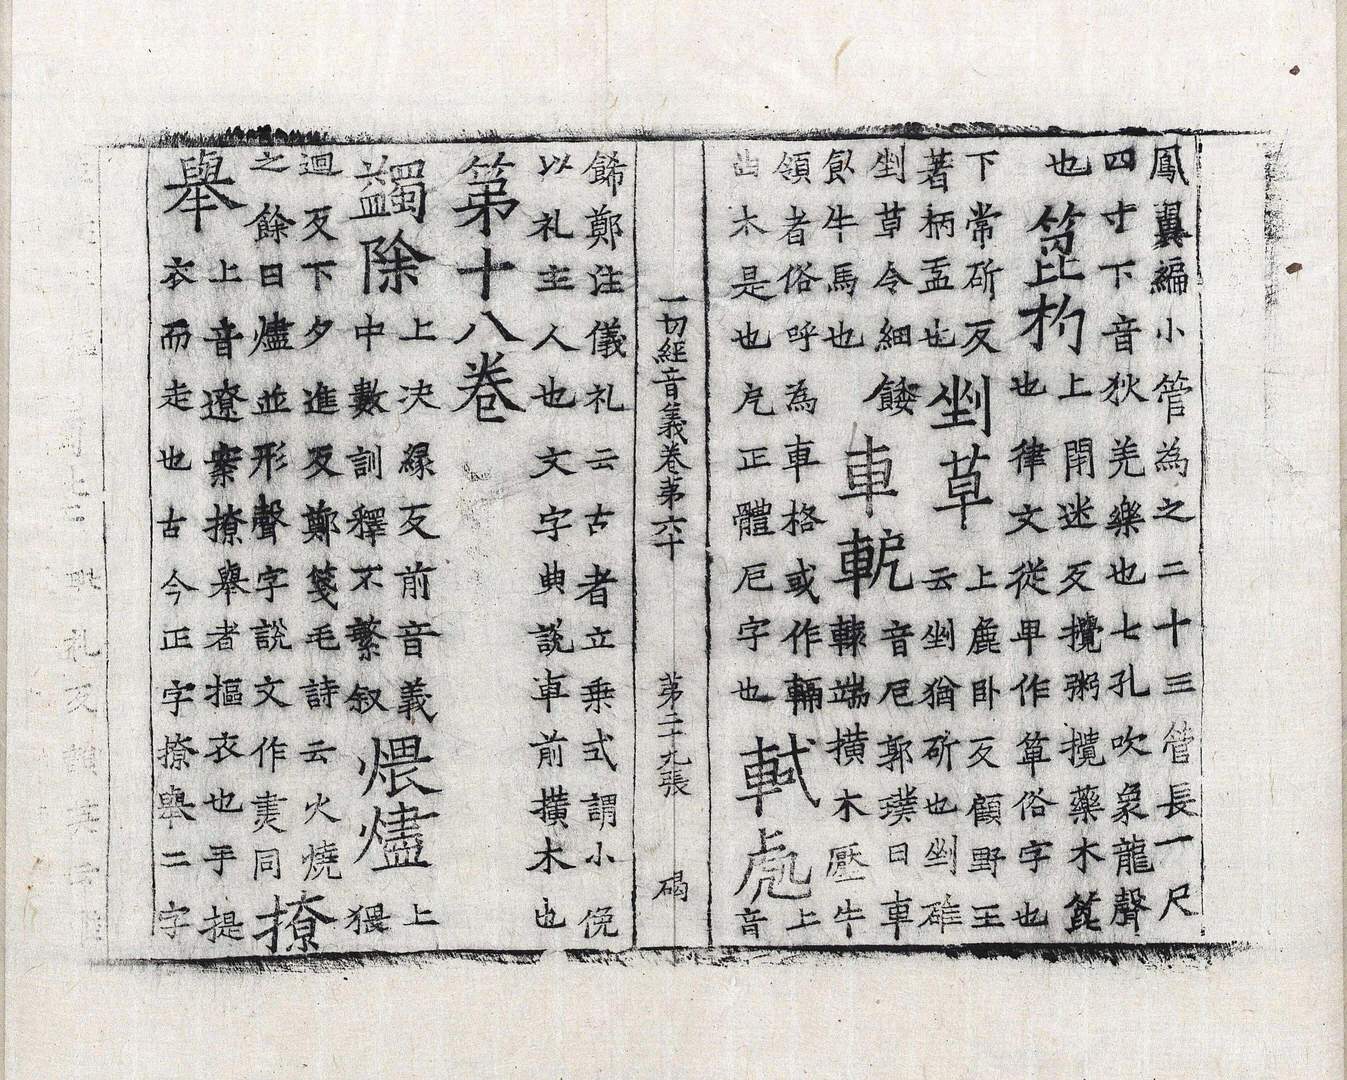 鳳翼編小管為之二十三管長一尺
四寸下音狄羌樂也七孔吹象龍聲
也箆杓上閇迷反攪粥攬藥木箆
也律文從卑作箄俗字也
下常斫反剉草上麁卧反顧野王
著柄盂也云剉猶斫也剉碓
剉草令細餧車軶音厄郭璞曰車
飲牛馬也轅端撗木壓牛
領者俗呼為車格或作轓上
出木是也戹正體厄字也軾虒音
一切經音義卷第六十 第二十九張 碣
餙鄭注儀礼云古者立乗式謂小俛
以礼主人也文字典說車前撗木也
第十八卷
蠲除上决緣反前音義煨燼上猥
中數訓釋不繁叙
迴反下夕進反鄭箋毛詩云火燒
之餘曰燼並形聲字說文作㶳同撩
舉上音遼案撩舉者摳衣也手提
衣而走也古今正字撩舉二字